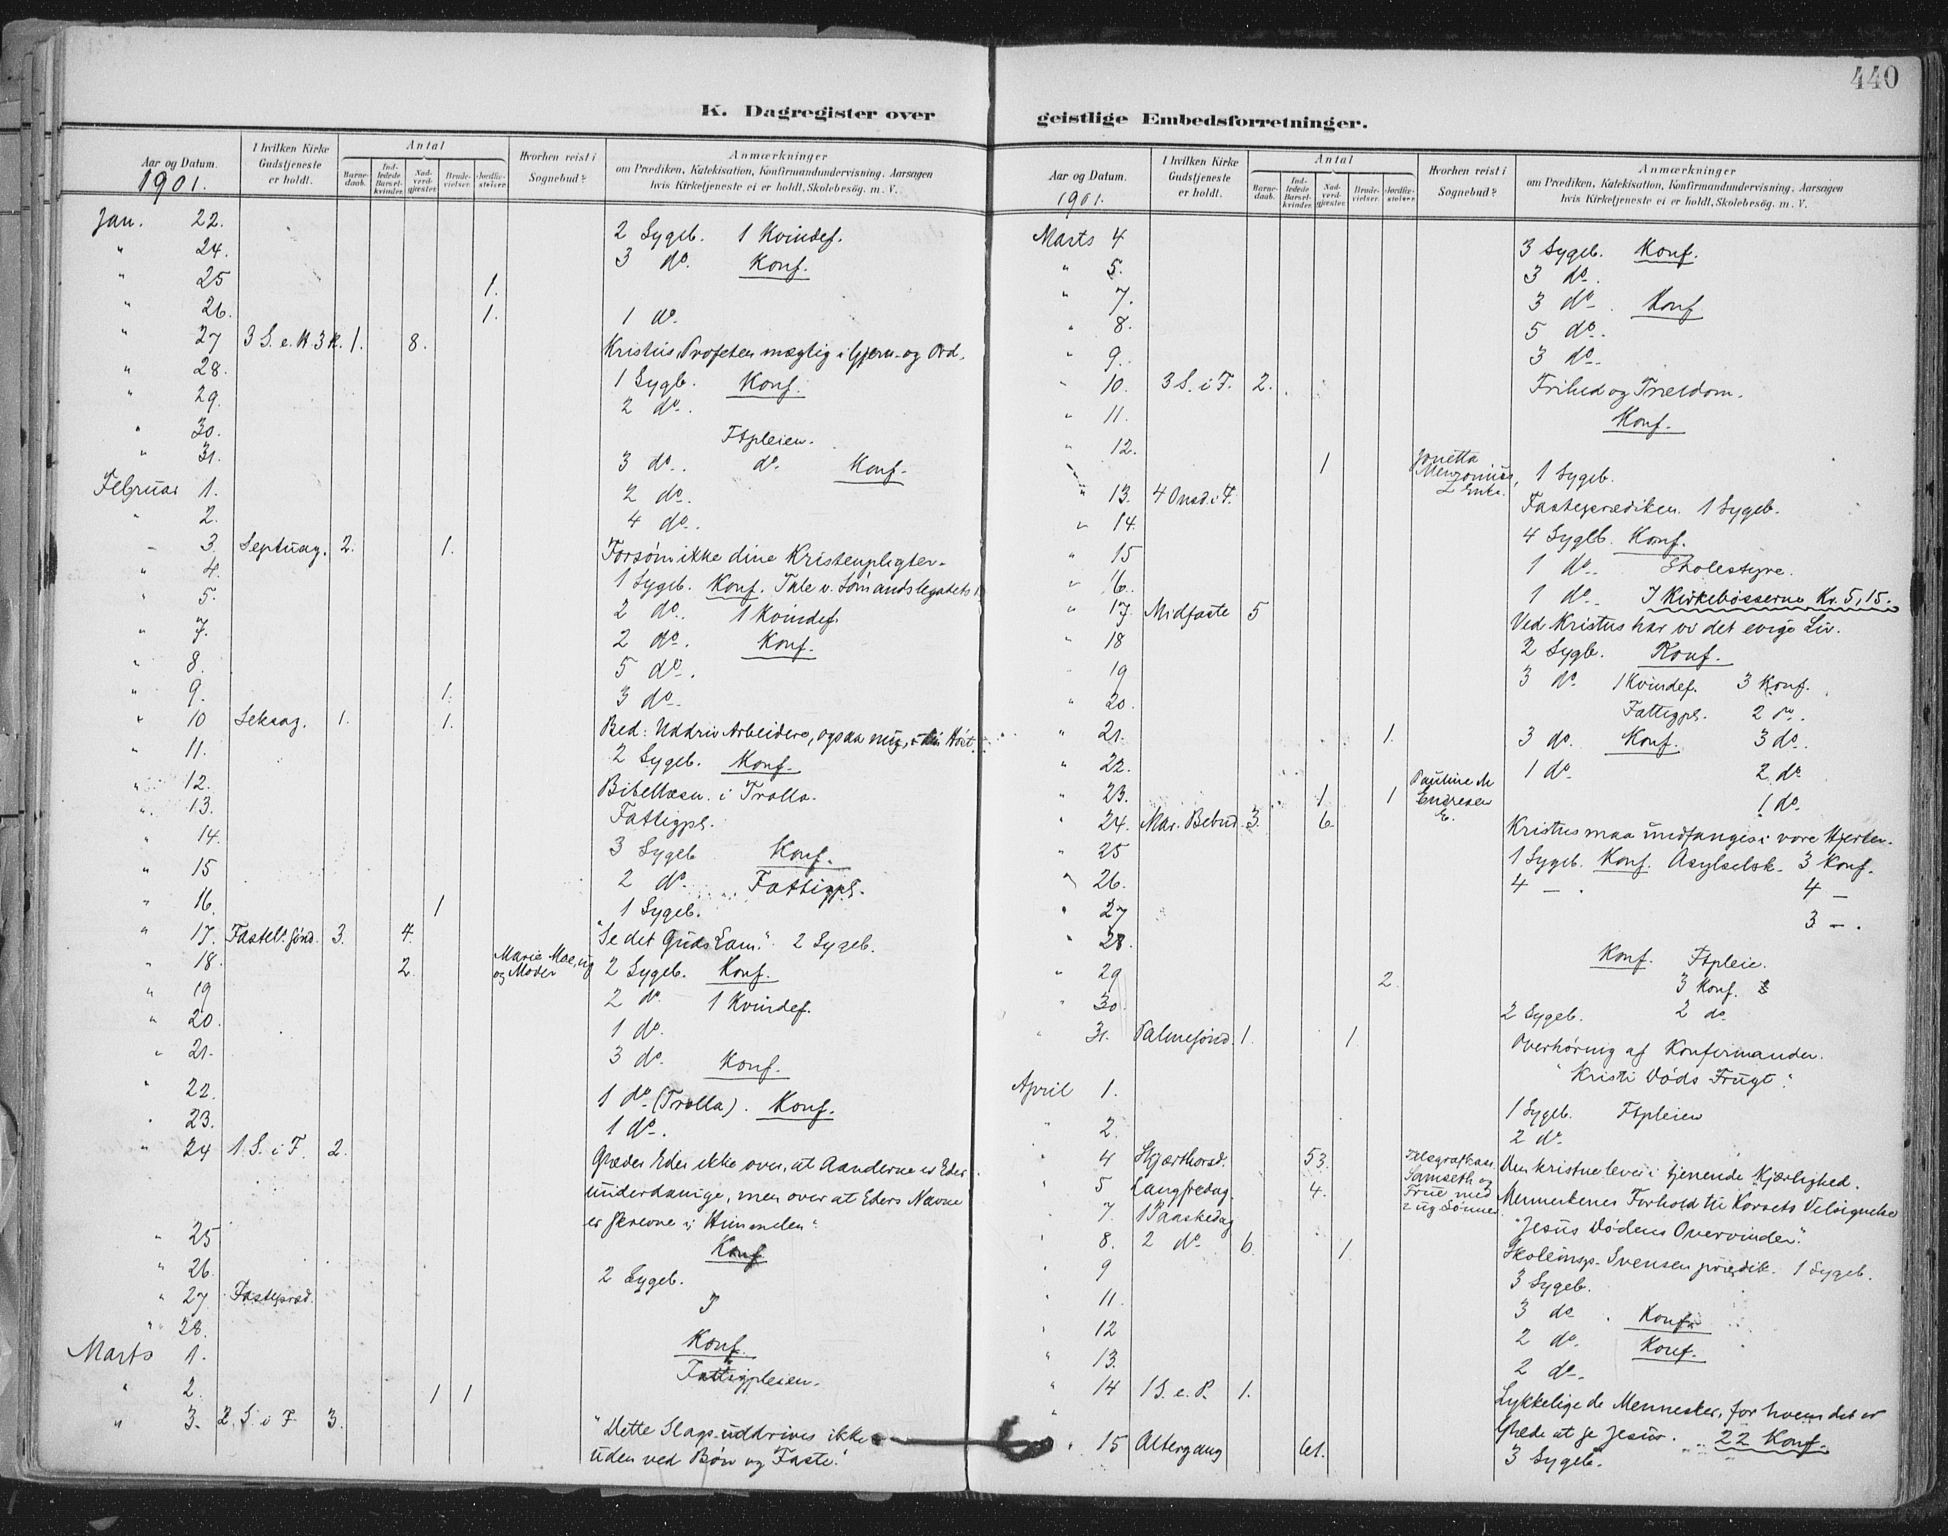 440
K. Dagregister over geistlige Embedsforretninger.
Aar og Datum. I hvilken Kirke Gudstjeneste er holdt. Antal Barnedaab. Indledede Barselkvinder. Nadverdgjester. Brudevielser. Jordfæstelser. Hvorhen reist i Sognebud? Anmærkninger om Prædiken, Katekisation, Konfirmandundervisning, Aarsagen hvis Kirketjeneste ei er holdt, Skolebesøg. m. V.
1901.
Jan. 22. 2 Sygeb. 1 Kvindef.
" 24. 3 do. Konf.
" 25 1.
" 26. 1. 1 do.
" 27 3 S. e. H 3 K. 1. 8. Kristus Profeten mægtig i Gjern. og Ord.
" 28. 1 Sygb. Konf.
" 29. 2 do.
" 30. Ftpleien.
" 31. 3 do. do. Konf.
Februar 1. 2 do.
" 2. 4 do.
" 3. Septuag. 2. 1. Forsøm ikke dine Kristenpligter.
" 4. 1 Sygeb. Konf. Tale v. Sømandslegatets
" 5. 2 do. 1 Kvindef.
" 7. 2 do. Konf.
" 8. 5 do.
" 9. 1. 3 do.
" 10 Seksag. 1. 1. Bed: Uddriv Arbeidere, ogsaa mig, i din Høst.
" 11. 2 Sygeb. Konf.
" 12. Bibellæsn. i Trolla.
" 13. Fattigpl.
" 14. 3 Sygeb Konf.
" 15 2 do. Fattigpl.
" 16. 1 1 Sygeb.
" 17. Fastel. sønd. 3. 4. "Se det Guds Lam." 2 Sygeb.
" 18. 2. Marie Moe, ug og Moder 2 Sygeb. Konf.
" 19 2 do. 1 Kvindef.
" 20. 1 do.
" 21. 3 do. Konf.
" 22. 1 do. (Trolla). Konf.
" 23. 1 do.
" 24 1. S. i F. 2. Glæder Eder ikke over, at Aanderne er Eder
underdanige, men over at Eders Navne
er skrevne i Himmelen"
" 25 Konf
" 26. 2 Sygeb.
" 27 Fastepræd.
" 28. Konf.
Marts 1. Fattigpleien.
" 2. 1 1
" 3. 2. S. i F. 3. "Dette Slags uddrives ikke
uden ved Bøn og Faste."
Aar og Datum. I hvilken Kirke Gudstjeneste er holdt. Antal Barnedaab. Indledede Barselkvinder. Nadverdgjester. Brudevielser. Jordfæstelser. Hvorhen reist i Sognebud? Anmærkninger om Prædiken, Katekisation, Konfirmandundervisning, Aarsagen hvis Kirketjeneste ei er holdt, Skolebesøg. m. V.
1901.
Marts 4 3 Sygeb. Konf.
" 5. 3 do.
" 7. 3 do. Konf
" 8. 5 do.
" 9. 3 do.
" 10. 3 S. i F. 2. Frihed og Trældom.
" 11. Konf.
" 12. 1 Jonetta 1 Sygeb.
" 13. 4 Onsd. i F. Fasteprædiken. 1 Sygeb.
" 14. 4 Sygb. Konf.
" 15 1 do. Skolestyre.
" 16. 1 do. I Kirkebøsserne Kr. 5,15.
" 17 Midfaste 5 Ved Kristus har vi det evige Liv.
" 18 2 Sygb. Konf.
" 19 3 do. 1 Kvindef. 3 Konf.
" 20. Fattigpl. 2 do.
" 21. 1. 3 do. Konf. 3 do.
" 22. 1 do. 2 do.
" 23. 1 1 Pauline M Endresen E. 1 do.
" 24. Mar. Bebud. 3. 6. Kristus maa undfanges i vore Hjerter.
" 25 1 Sygeb. Konf. Asylselsk. 3 Konf.
" 26. 4 — 4 —
" 27 3 —.
" 28. Konf. Ftpleie.
" 29 2. 3 Konf.
" 30. 2 Sygeb. 2 do
" 31. Palmesønd. 1. 1. Overhøring af Konfirmander.
"Kristi Døds Frugt".
April 1. 1 Sygeb. Ftpleien
" 2. 2 do.
" 4 Skjærthorsd. 53. Telegrafkas. Samseth og Frue med 2 ug Sønner Den kristne lever i tjenende Kjærlighed.
" 5 Langfredag. 4. Menneskenes Forhold til Korsets Velsignelse
" 7. 1 Paaskedag "Jesus Dødens Overvinder."
" 8. 2 do. 6. 1. Skoleinsp. Svensen prædik. 1 Sygeb.
" 9 3 Sygeb.
" 11. 3 do. Konf.
" 12 2 do. Konf.
" 13. 2 do.
" 14 1 S. e. P. 1. Lykkelige de Mennesker, for hvem det er
Glæde at se Jesus. 22 Konf.
" 15 Altergang 61. 3 Sygeb.